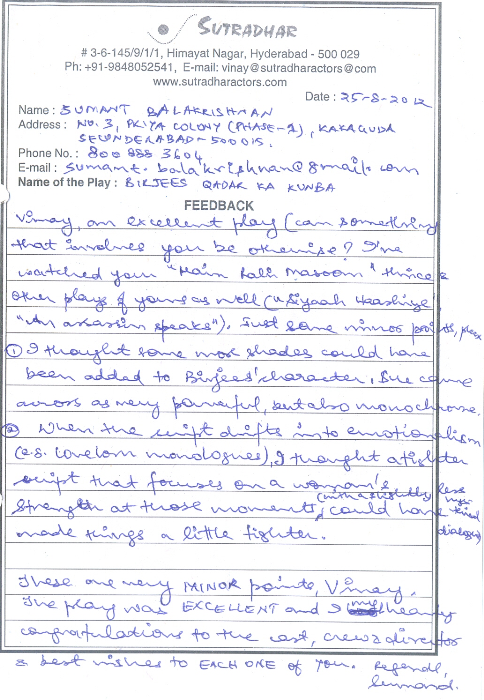 SUTRADHAR
# 3-6-145/9/1/1, Himayat Nagar, Hyderabad - 500 029
Ph: +91-9848052541, E-mail: vinay@sutradharactors.com
www.sutradharactors.com
Date : 25-8-2012
Name : SUMANT BALAKRISHNAN
Address : NO. 3, PRIYA COLONY (PHASE-1), KAKAGUDA
SECUNDERABAD - 500015.
Phone No. : 800 885 3604
E-mail : sumant.balakrishnan@gmail.com
Name of the Play : BIRJEES QADAR KA KUNBA
FEEDBACK
Vinay, an excellent play (can something
that involves you be otherwise? I've
watched your "Main Rahi Masoom" thrice &
other plays of yours as well ("Siyaah Haashiye"
"An assassin speaks"). Just some minor points, please
① I thought some more shades could have
been added to Birjees' character. She came
across as very powerful, but also monochrome.
② When the script drifts into emotionalism
(e.g. lovelorn monologues), I thought a tighter
script that focuses on a woman's
strength at those moments, could have
(with a slightly less
kind dialogue)
made things a little tighter.
These are very MINOR points, Vinay.
The play was EXCELLENT and my hearty
congratulations to the cast, crew & director
& best wishes to EACH ONE OF YOU. Regards,
Sumant.